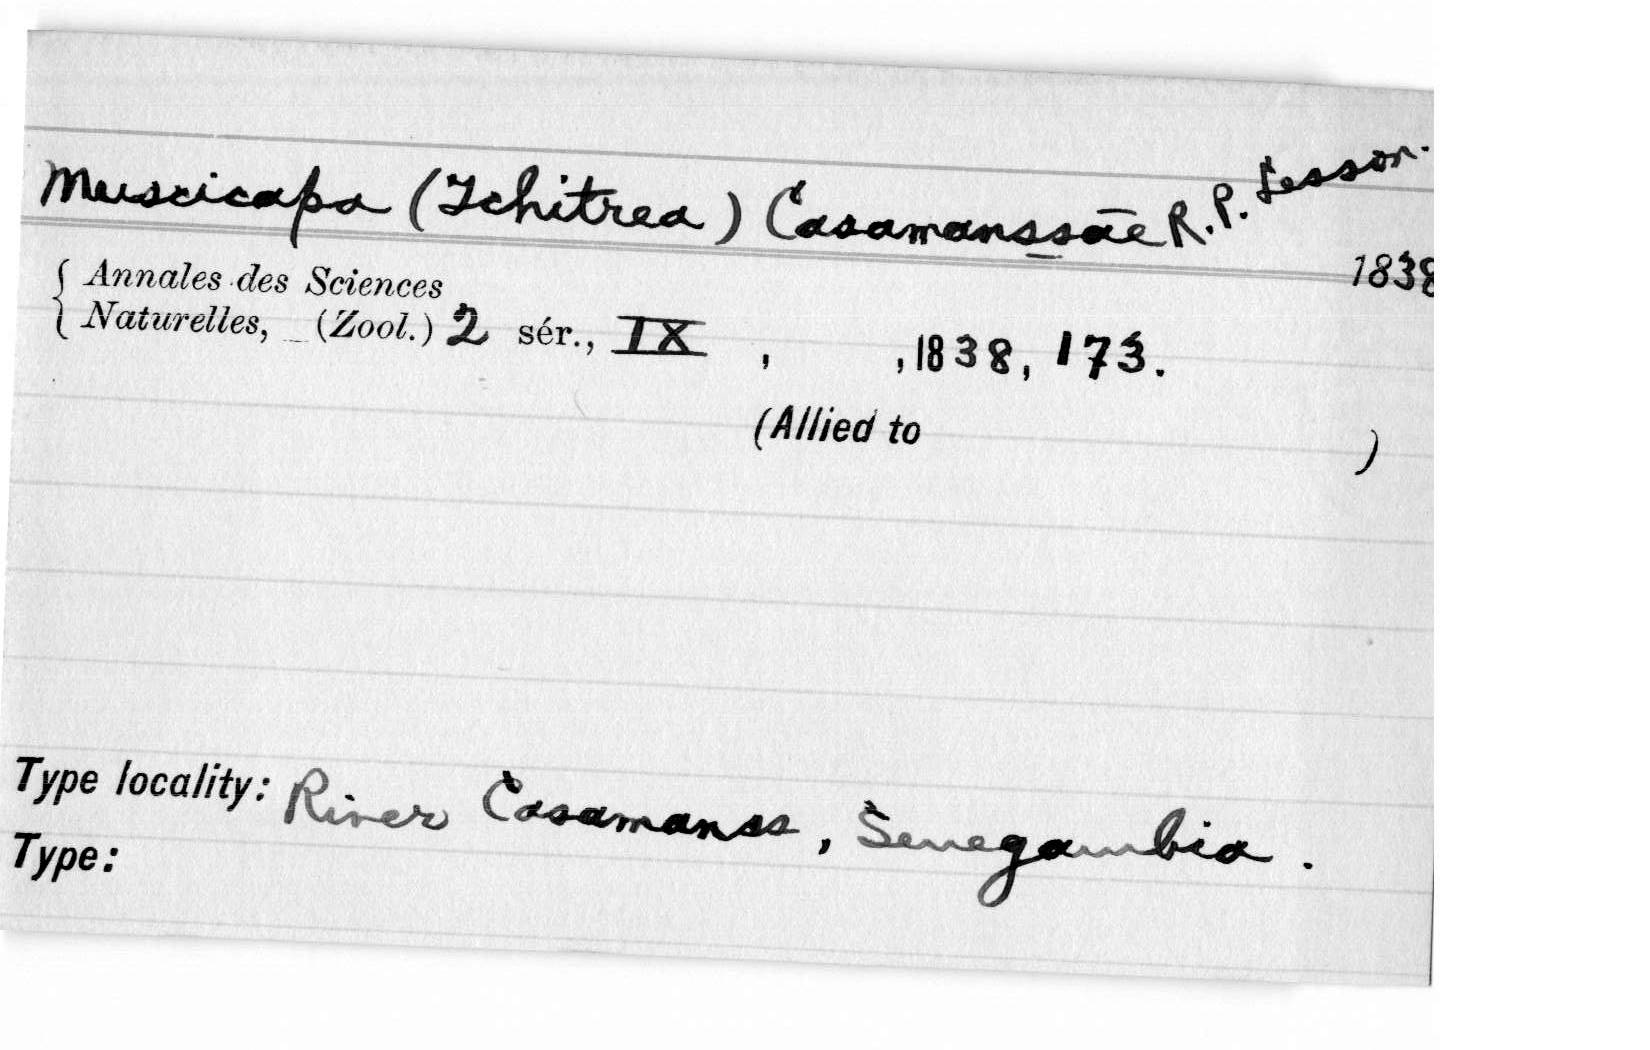 Muscicapa (Tchitrea) Casamanssāe R. P. Lesson.
1838
Annales des Sciences
Naturelles, (Zool.) 2 sér., IX , , 1838, 173.
(Allied to )
Type locality: River Casamanss, Senegambia.
Type: